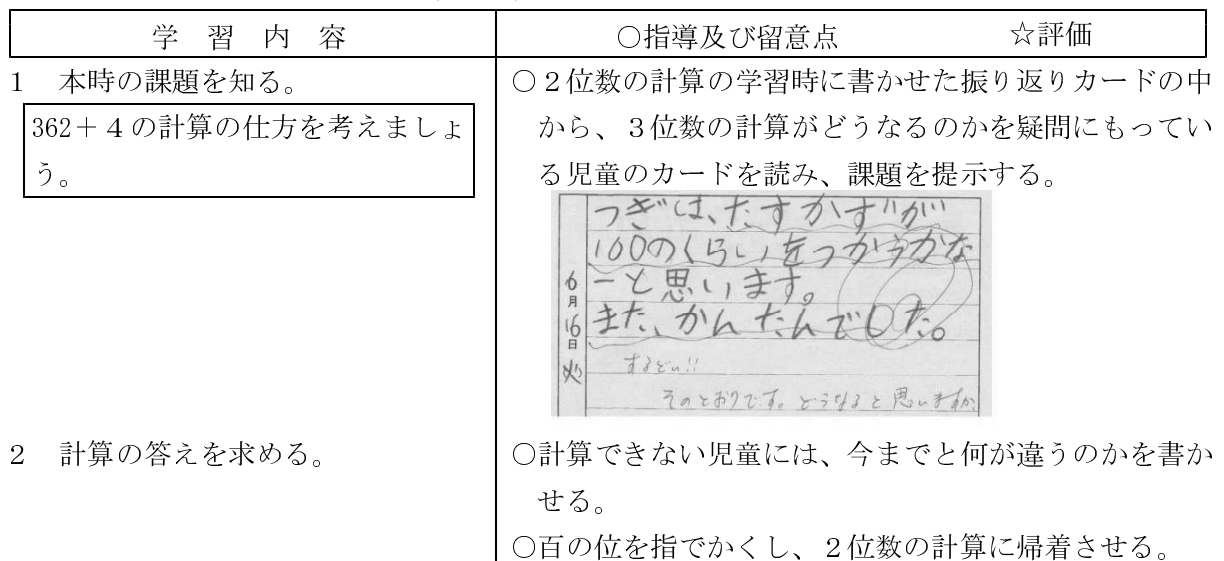 学　習　内　容
○指導及び留意点　☆評価
1　本時の課題を知る。
362＋４の計算の仕方を考えましょ
う。
○２位数の計算の学習時に書かせた振り返りカードの中
から、３位数の計算がどうなるのかを疑問にもってい
る児童のカードを読み、課題を提示する。
6月16日 火
つぎは、たすかずが
100のくらいをつかうかな
ーと思います。
また、かんたんでした。
するどい!!
そのとおりです。どうなると思いますか
2　計算の答えを求める。
○計算できない児童には、今までと何が違うのかを書か
せる。
○百の位を指でかくし、２位数の計算に帰着させる。